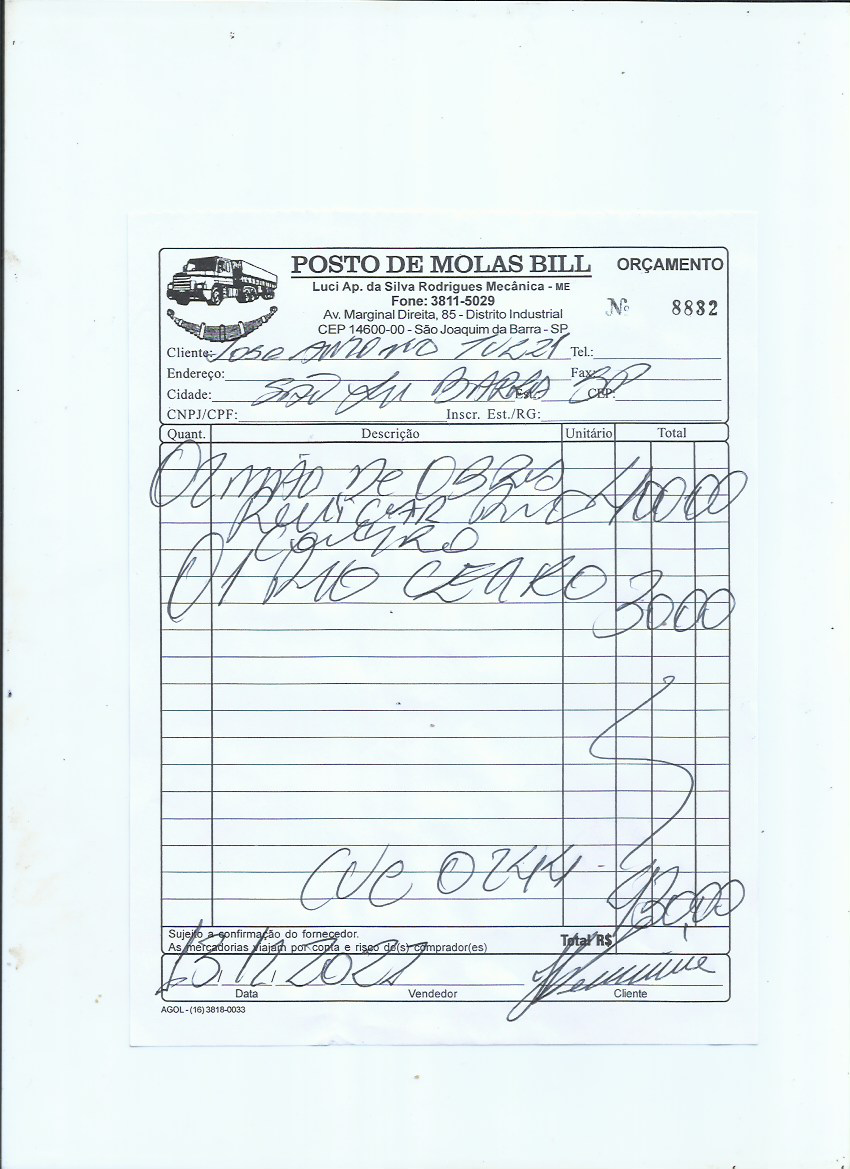 POSTO DE MOLAS BILL ORÇAMENTO
Luci Ap. da Silva Rodrigues Mecânica - ME
Fone: 3811-5029
Av. Marginal Direita, 85 - Distrito Industrial
CEP 14600-00 - São Joaquim da Barra - SP
Nº 8832
Cliente: Jose Antonio Tel.:
Endereço: Fax:
Cidade: São Barra Est.: SP CEP:
CNPJ/CPF: Inscr. Est./RG:
Quant. Descrição Unitário Total
mão de obra 100,00
Centro
01 Pino Centro 30,00
CVC 0244 - 130,00
Sujeito a confirmação do fornecedor.
As mercadorias viajam por conta e risco de(s) comprador(es) Total R$
13.12.2021
Data Vendedor Cliente
AGOL - (16) 3818-0033